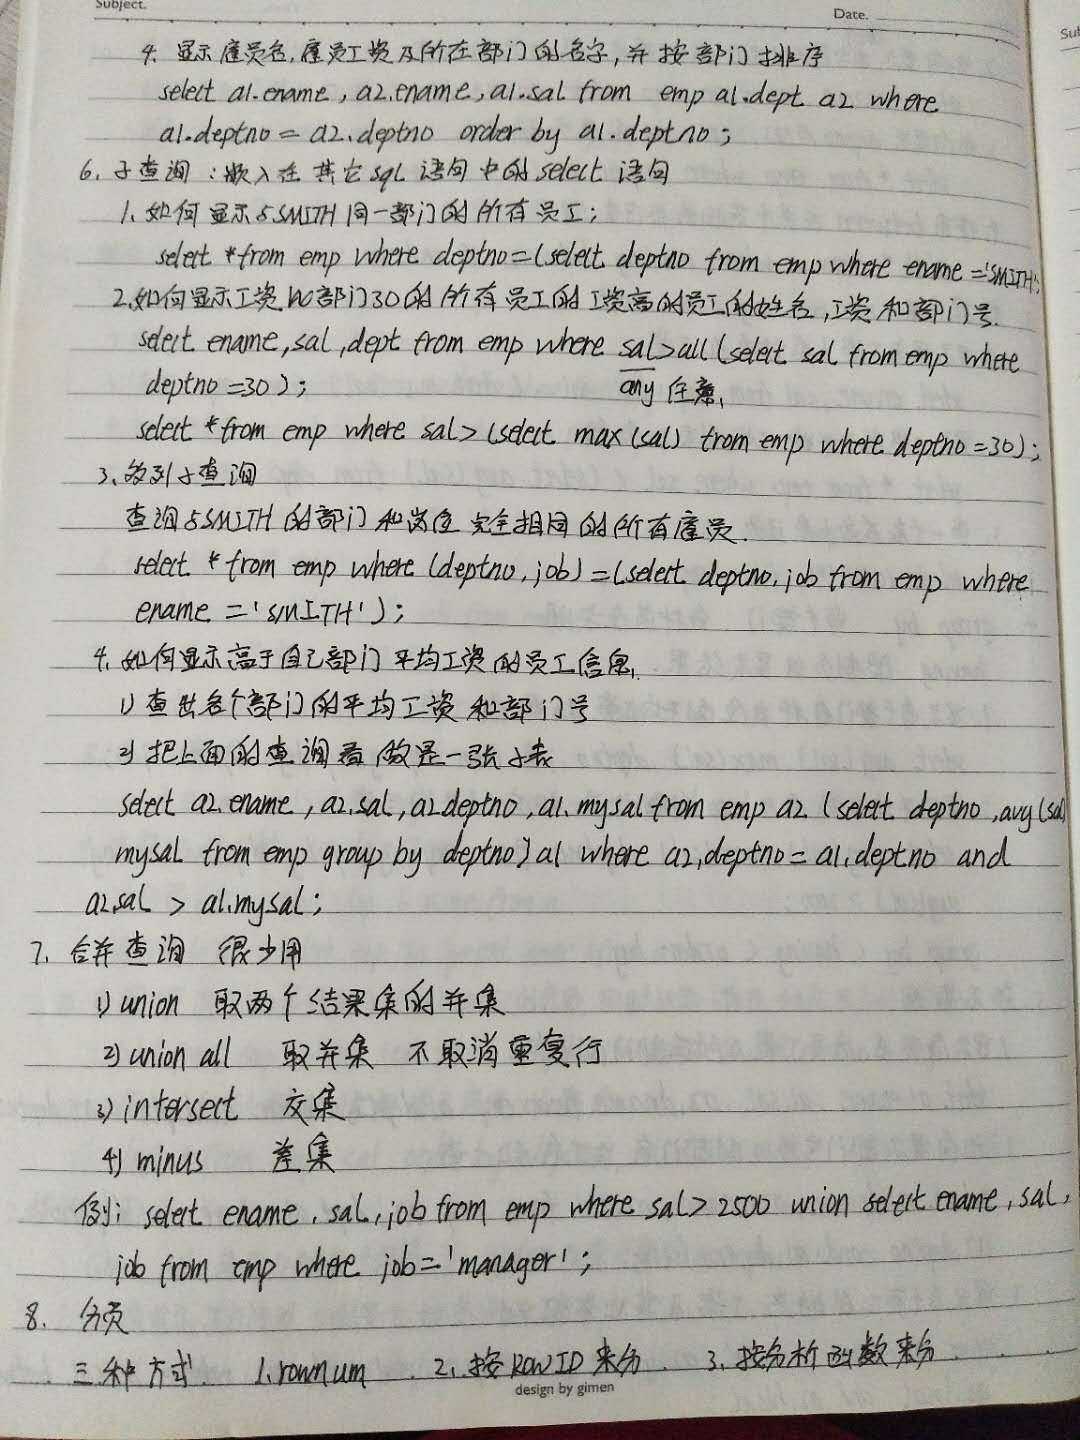 Subject.
Date.
4. 显示雇员名,雇员工资及所在部门的名字,并按部门排序
select a1.ename, a2.ename, a1.sal from emp a1.dept a2 where
a1.deptno = a2.deptno order by a1.deptno;
6. 子查询:嵌入在其它sql语句中的select语句
1. 如何显示与SMITH同一部门的所有员工;
select *from emp where deptno=(select deptno from emp where ename='SMITH');
2.如何显示工资比部门30的所有员工的工资高的员工的姓名,工资和部门号.
select ename,sal,dept from emp where sal>all(select sal from emp where
deptno=30);
any 任意.
select *from emp where sal>(select max(sal) from emp where deptno=30);
3、多列子查询
查询与SMITH的部门和岗位完全相同的所有雇员.
select * from emp where (deptno,job)=(select deptno,job from emp where
ename='SMITH');
4. 如何显示高于自己部门平均工资的员工信息.
1) 查出各个部门的平均工资和部门号
2) 把上面的查询看做是一张子表
select a2.ename, a2.sal, a2.deptno, a1.mysal from emp a2 (select deptno,avg(sal)
mysal from emp group by deptno) a1 where a2.deptno=a1.deptno and
a2.sal > a1.mysal;
7. 合并查询 很少用
1) union 取两个结果集的并集
2) union all 取并集 不取消重复行
3) intersect 交集
4) minus 差集
例: select ename, sal, job from emp where sal>2500 union select ename, sal,
job from emp where job='manager';
8. 分页
三种方式 1.rownum 2.按ROWID来分 3.按分析函数来分
design by gimen